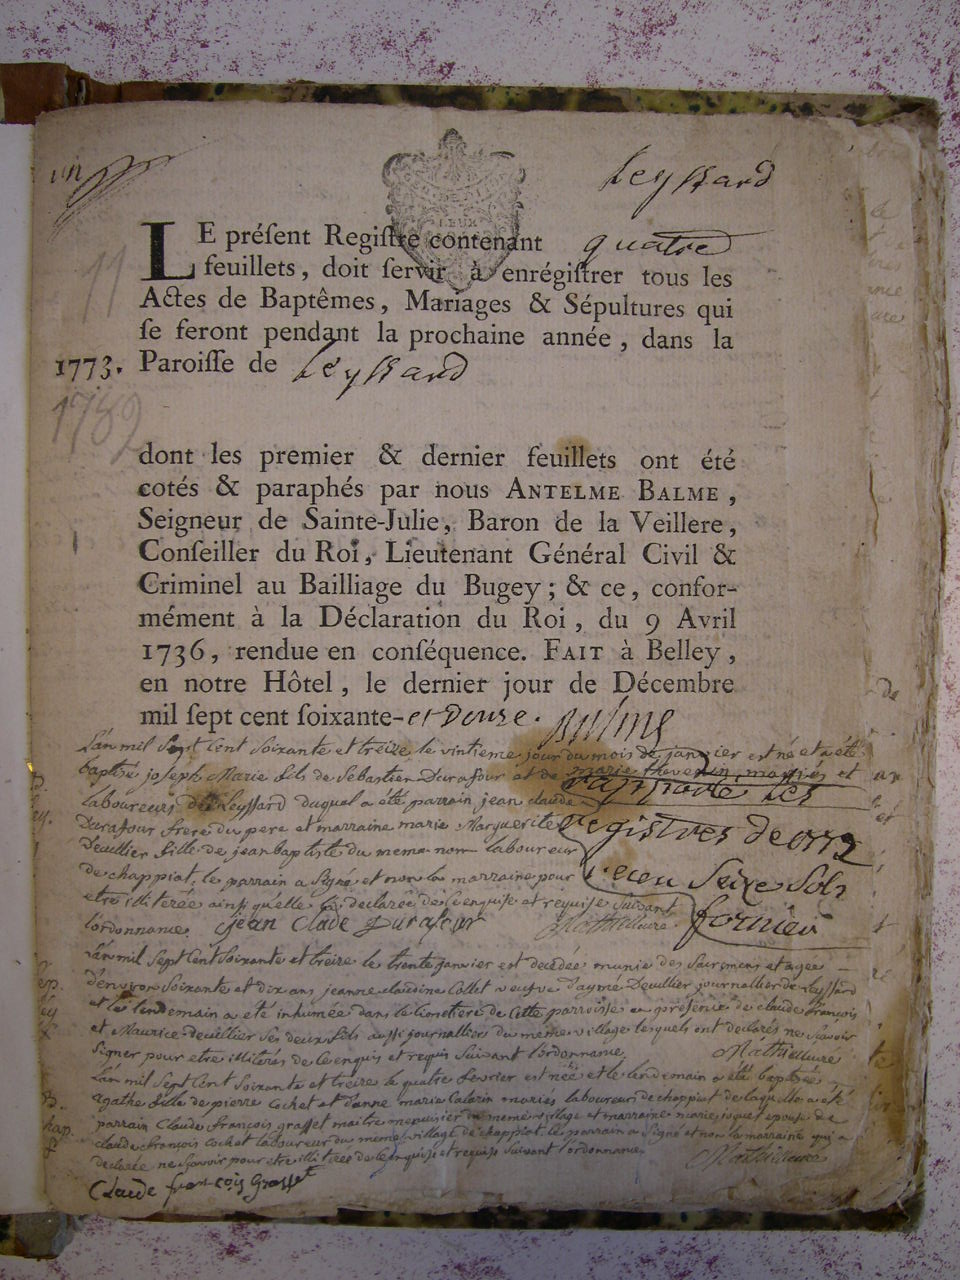 un
Leyssard
LE préſent Regiſtre contenant quatre
feuillets, doit ſervir à enrégiſtrer tous les
Actes de Baptêmes, Mariages & Sépultures qui
ſe feront pendant la prochaine année, dans la
1773. Paroiſſe de Leyssard
11
1789
dont les premier & dernier feuillets ont été
cotés & paraphés par nous ANTELME BALME,
Seigneur de Sainte-Julie, Baron de la Veillere,
Conſeiller du Roi, Lieutenant Général Civil &
Criminel au Bailliage du Bugey; & ce, confor-
mément à la Déclaration du Roi, du 9 Avril
1736, rendue en conſéquence. FAIT à Belley,
en notre Hôtel, le dernier jour de Décembre
mil ſept cent ſoixante-et Douze. Balme
L'an mil sept cent soixante et treize le vintieme jour du mois de janvier est né et a été
baptisé joseph Marie fils de Sebastien Durafour et de marie thevenin mariés et
laboureurs de Leyssard duquel a été parrain jean claude
Durafour frere du pere et marraine marie Marguerite
Deuillier fille de jean baptiste du meme nom laboureur
de chappiat, le parrain a signé et non la marraine pour
etre illiterée ainsi qu'elle l'a declarée de ce enquise et requise suivant
l'ordonnance. jean Claude Durafour Mathieleure
registres de 1772
reçu seize sols
fornier
L'an mil sept cent soixante et treize le trente janvier est decedée munie des sacremens et agée
d'environ soixante et dix ans jeanne claudine Collet veufve d'aymé Deuillier journallier de Leyssard
et le lendemain a été inhumée dans le cimetiere de cette parroisse en présence de claude françois
et Maurice Deuillier ses deux fils aussi journalliers du meme village lesquels ont declarés ne sçavoir
signer pour etre illiterés de ce enquis et requis suivant l'ordonnance. Mathieleure
L'an mil sept cent soixante et treize le quatre fevrier est née et le lendemain a été baptisée
agathe fille de pierre Cochet et d'anne marie mariés laboureurs de chappiat de laquelle a été
parrain Claude François grasset maitre menuisier du meme village et marraine marie epouse de
claude françois Cochet laboureur du meme village de chappiat. le parrain a signé et non la marraine qui a
declarée ne sçavoir pour etre illiterée de ce enquise et requise suivant l'ordonnance. Mathieleure
Claude françois Grasset